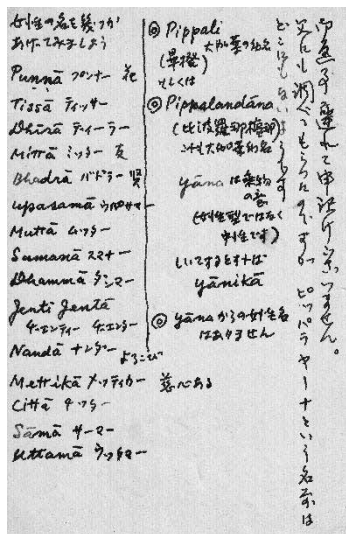 御返事遅れて申訳けございません。
父にも調べてもらったのですが ピッパラヤーナという名前は
どこにもないようです
◎ Pippali
大迦葉の幼名
もしくは
◎ Pippalandāna
これも大迦葉の幼名
yāna は乗物
の意
(女性型ではなく
中性です)
しいてするとすれば
yānikā
◎ yāna からの女性名
はありません
女性の名を幾つか
あげてみましょう
Punnā プンナー 花
Tissā ティッサー
Dhīrā ディーラー
Mittā ミッター 友
Bhadrā バドラー 賢
Upasamā ウパサマー
Muttā ムッター
Sumanā スマナー
Dhammā ダンマー
Jenti Jentā
ヂェンティー ヂェンター
Nandā ナンダー よろこび
Mettikā メッティカー 慈心ある
Cittā チッター
Sāmā サーマー
Uttamā ウッタマー